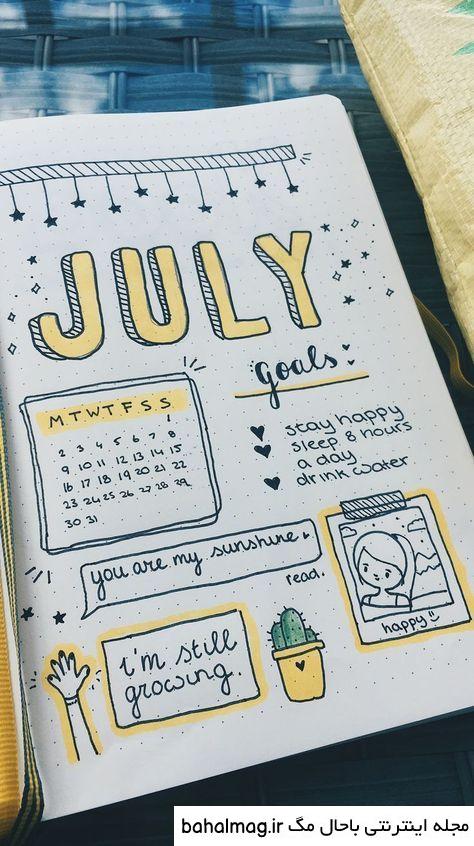 JULY
M.T.W.T.F.S.S
1
2 3 4 5 6 7 8
9 10 11 12 13 14 15
16 17 18 19 20 21 22
23 24 25 26 27 28 29
30 31
goals
stay happy
sleep 8 hours
a day
drink water
you are my sunshine
read.
happy
i'm still
growing.
مجله اینترنتی باحال مگ bahalmag.ir